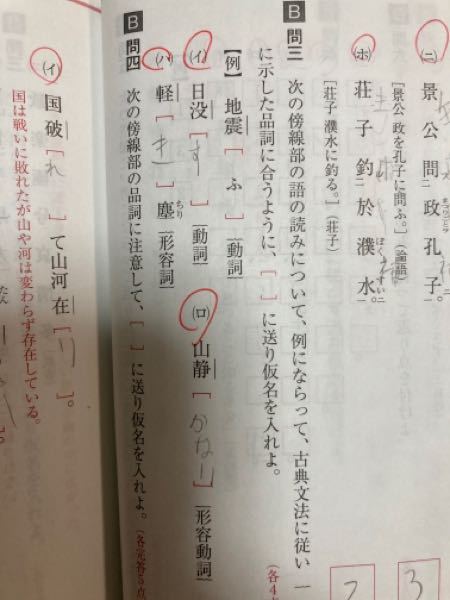 ㈡ 景公問二政孔子一。
[景公 政を孔子に問ふ。](論語)
㈭ 荘子釣二於濮ぼく水すい一。
[荘子 濮水に釣る。](荘子)
B 問三 次の傍線部の語の読みについて、例にならって、古典文法に従い
に示した品詞に合うように、[ ]に送り仮名を入れよ。
(各4点
【例】 地震[ ふ ]―動詞
㈠ 日没[ す ]―動詞 ㈺ 山静[ かなり ]―形容動詞
㈩ 軽[ き ]塵ちり―形容詞
B 問四 次の傍線部の品詞に注意して、[ ]に送り仮名を入れよ。
(各完答5点
㈠ 国破[ れ ]て山河在[ り ]。
国は戦いに敗れたが山や河は変わらず存在している。
3
2